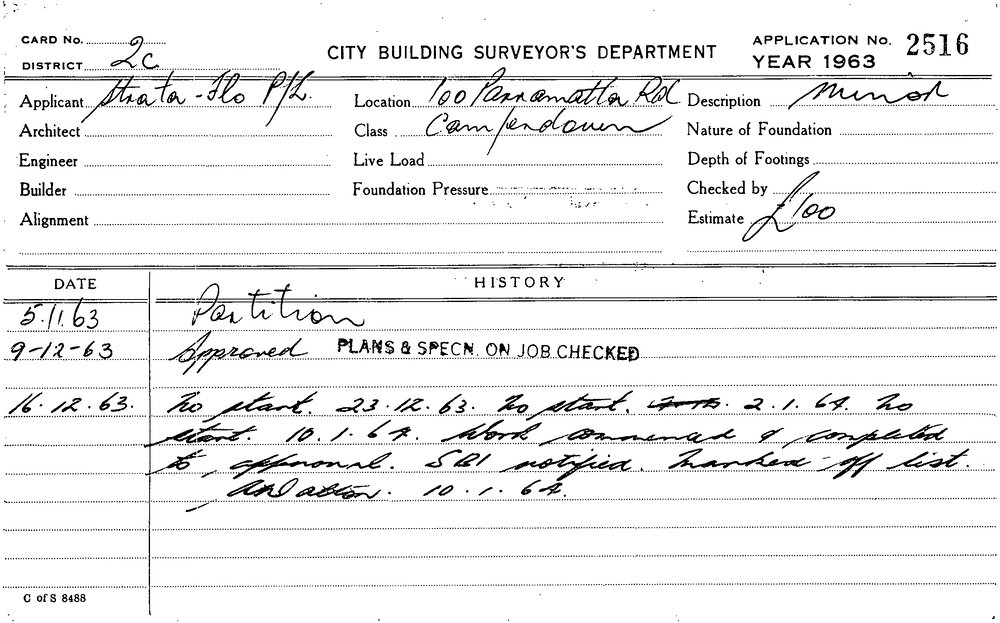 CARD No.
DISTRICT 2c
CITY BUILDING SURVEYOR'S DEPARTMENT
APPLICATION No. 2516
YEAR 1963
Applicant Strata-Flo P/L.
Location 100 Parramatta Rd
Description Minor
Architect
Class Camperdown
Nature of Foundation
Engineer
Live Load
Depth of Footings
Builder
Foundation Pressure
Checked by
Alignment
Estimate £100
DATE
HISTORY
5.11.63 Partition
9-12-63 Approved PLANS & SPECN. ON JOB CHECKED
16.12.63. No start. 23.12.63. No start. 2.1.64. No
start. 10.1.64. Work commenced & completed
to approval. SBI notified. Marked off list.
10.1.64.
C of S 8488